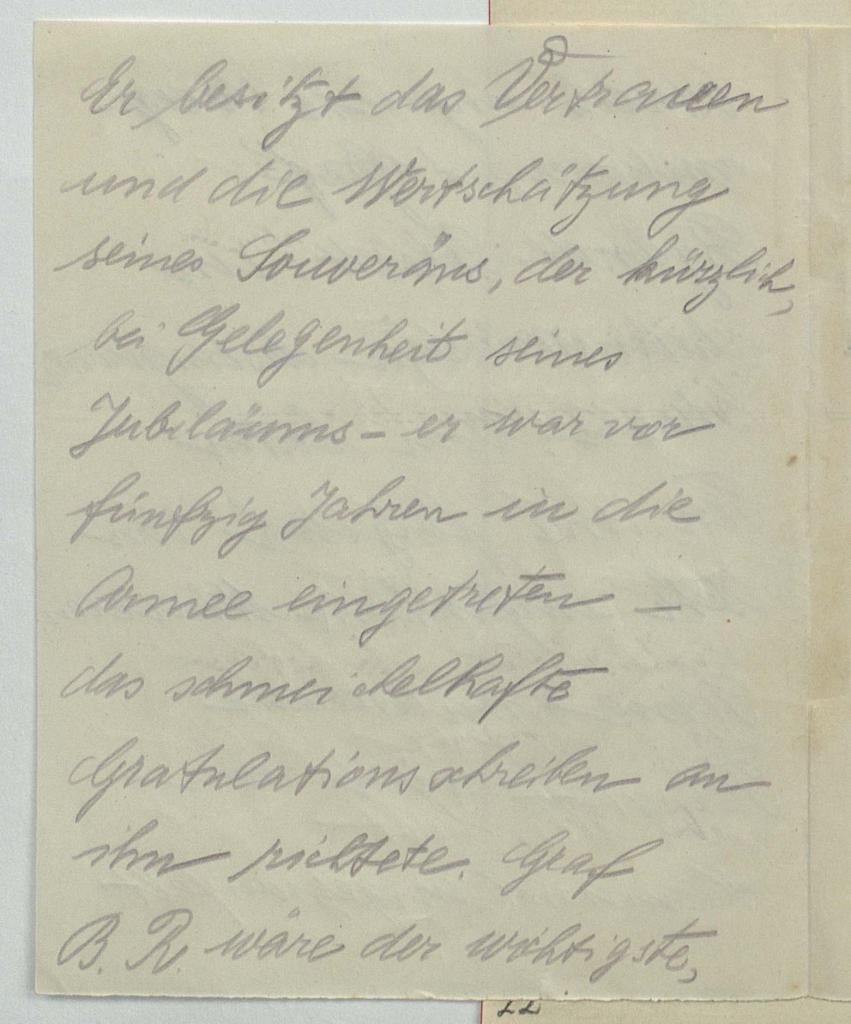 Er besitzt das Vertrauen
und die Wertschätzung
seines Souveräns, der kürzlich,
bei Gelegenheit seines
Jubiläums – er war vor
fünfzig Jahren in die
Armee eingetreten –
das schmeichelhafte
Gratulationsschreiben an
ihn richtete. Graf
B. R. wäre der wichtigste,